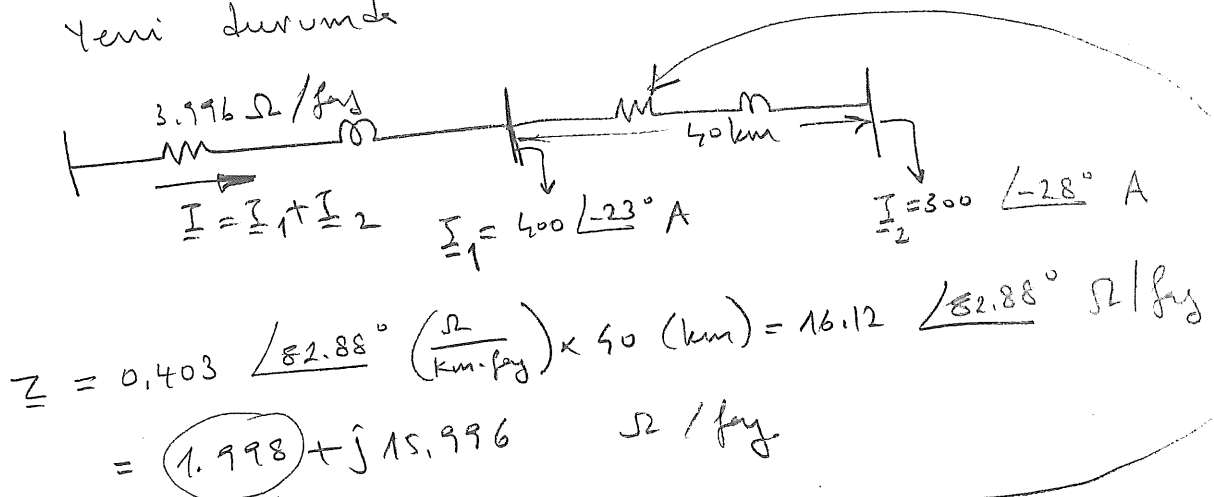 Yeni durumda
3.996 Ω/faz
40 km
I = I₁ + I₂
I₁ = 400 ∠-23° A
I₂ = 300 ∠-28° A
Z = 0,403 ∠82.88° (Ω/km.faz) x 40 (km) = 16.12 ∠82.88° Ω/faz
= 1.998 + j 15.996 Ω/faz